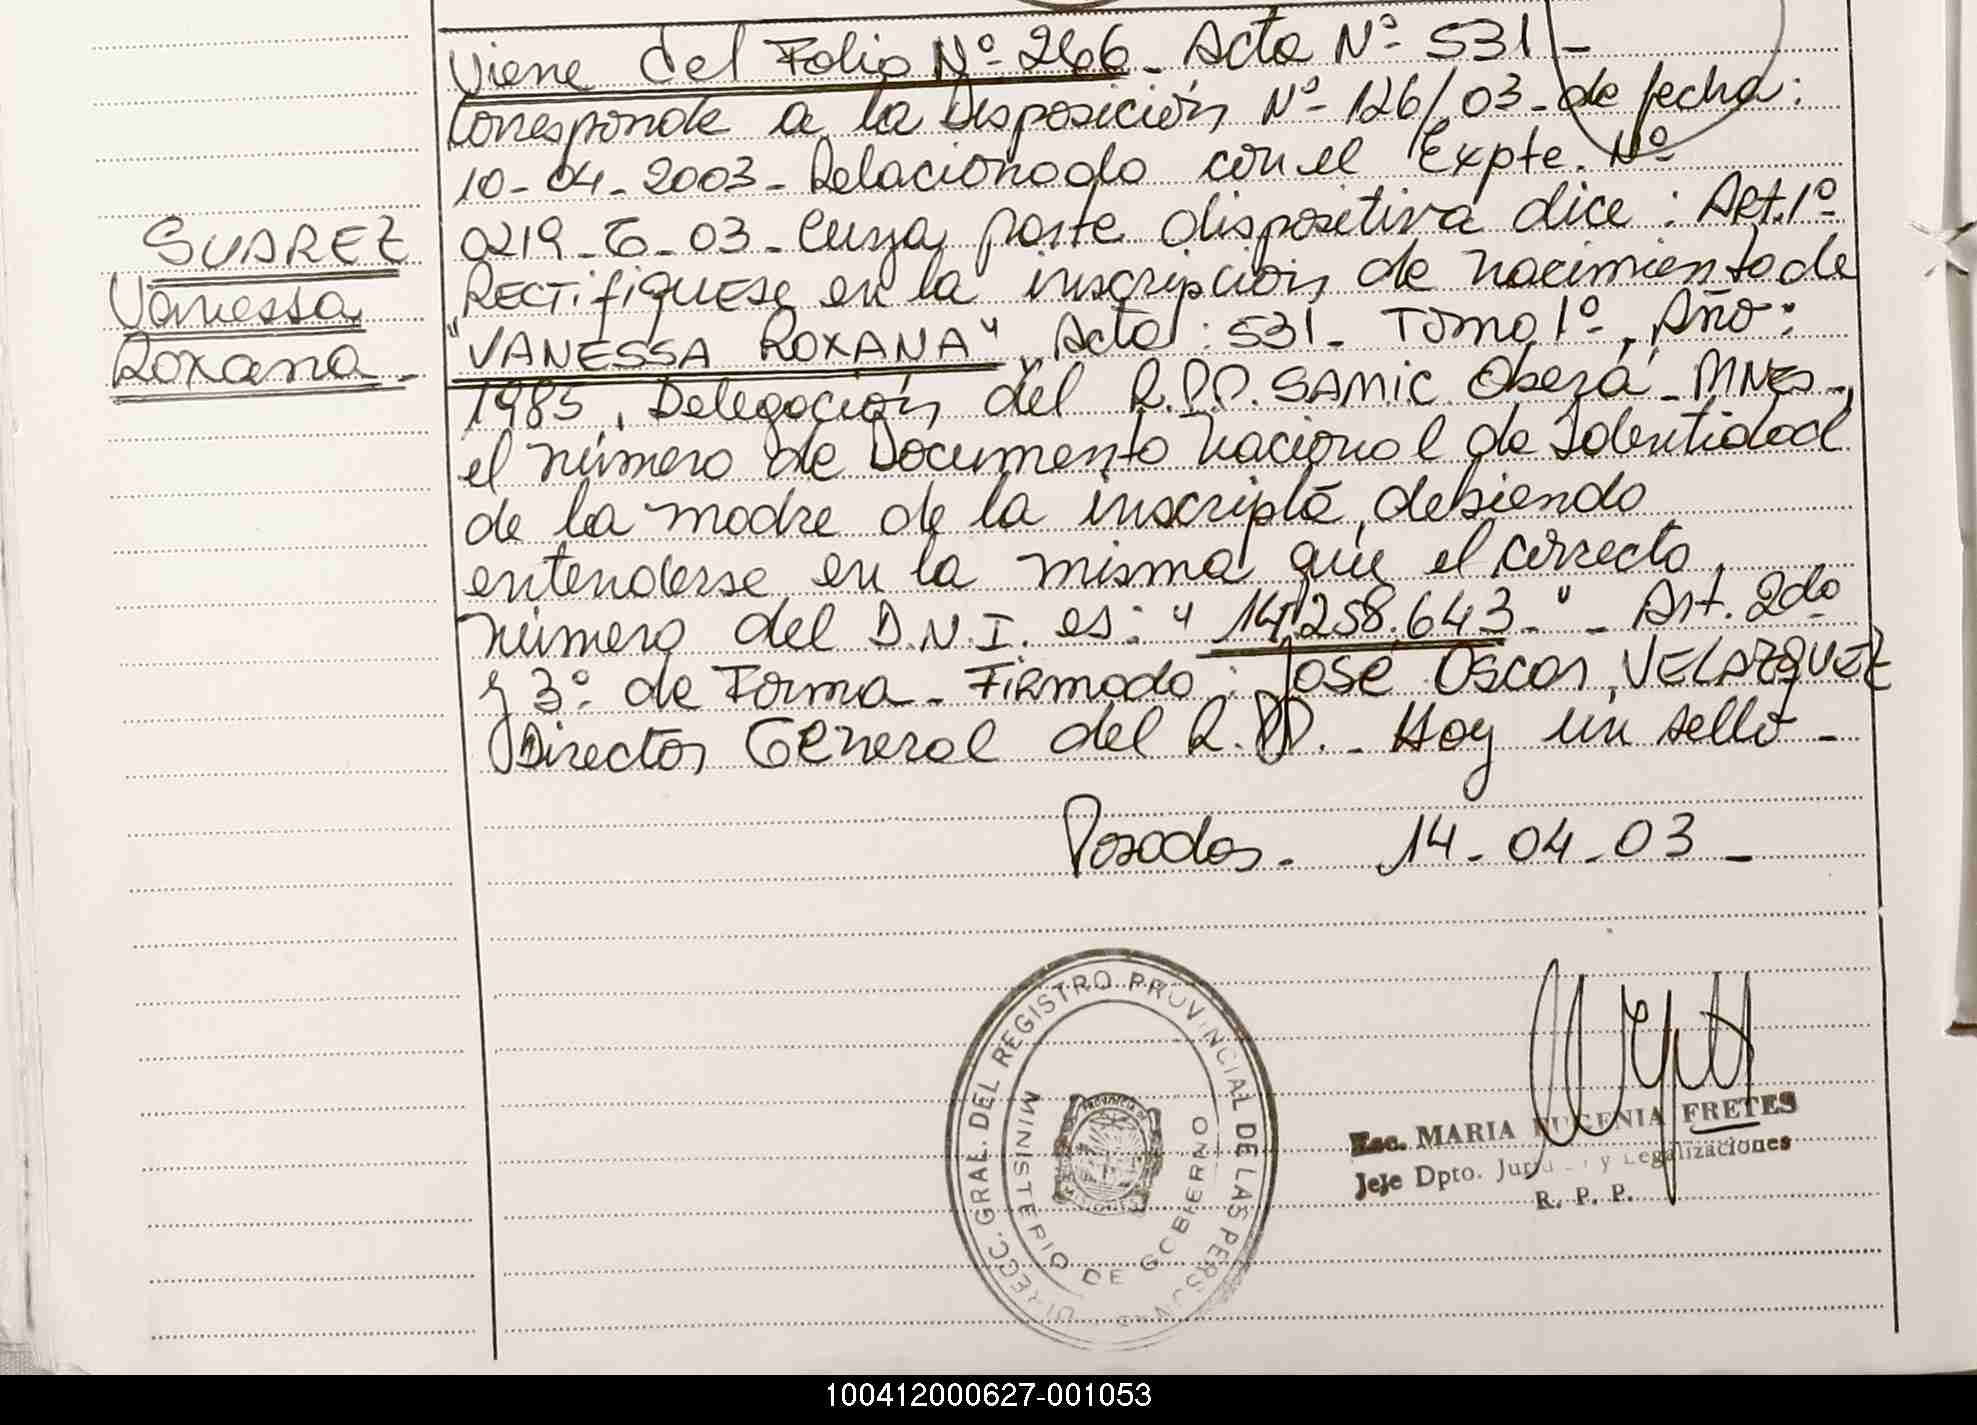 Viene del Folio Nº 266 - Acta Nº 531 -
Corresponde a la Disposición Nº 126/03 - de fecha:
10-04-2003 - Relacionado con el Expte. Nº
0219-G-03 - Cuya parte dispositiva dice: Art. 1º
SUAREZ
Vanessa
Roxana -
RECTifiQUESE en la inscripción de nacimiento de
"VANESSA ROXANA", Acta: 531 - Tomo 1º, Año:
1985, Delegación del R.P.P. SAMIC Oberá - MNES -,
el número de Documento Nacional de Identidad
de la madre de la inscripta, debiendo
entenderse en la misma que el correcto
número del D.N.I. es: "14.258.643." - Art. 2do
y 3º de Forma - Firmado: José Oscar VELAZQUEZ
Director General del R.P.P. - Hay un sello -
Posadas - 14-04-03 -
DIRECC. GRAL. DEL REGISTRO PROVINCIAL DE LAS PERSONAS
MINISTERIO DE GOBIERNO
PROVINCIA DE
Esc. MARIA EUGENIA FRETES
Jefe Dpto. y Legalizaciones
R. P. P.
100412000627-001053